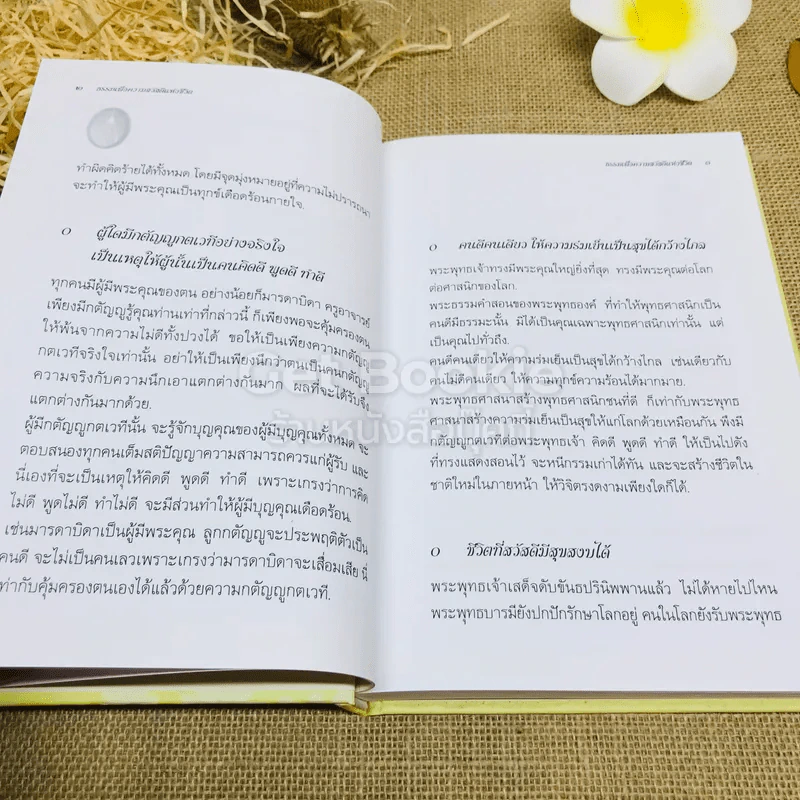 ๒ แสงส่องใจ
ทำผิดคิดร้ายได้ทั้งหมด โดยมีจุดมุ่งหมายอยู่ที่ความไม่ปรารถนา
จะทำให้ผู้มีพระคุณเป็นทุกข์เดือดร้อนกายใจ.
๐ ผู้ใดมีกตัญญูกตเวทีอย่างจริงใจ
เป็นเหตุให้ผู้นั้นเป็นคนคิดดี พูดดี ทำดี
ทุกคนมีผู้มีพระคุณของตน อย่างน้อยก็มารดาบิดา ครูอาจารย์
เพียงมีกตัญญูรู้คุณท่านเท่าที่กล่าวนี้ ก็เพียงพอจะคุ้มครองตน
ให้พ้นจากความไม่ดีทั้งปวงได้ ขอให้เป็นเพียงความกตัญญู
กตเวทีจริงใจเท่านั้น อย่าให้เป็นเพียงนึกว่าตนเป็นคนกตัญญู
ความจริงกับความนึกเอาแตกต่างกันมาก ผลที่จะได้รับจึง
แตกต่างกันมากด้วย.
ผู้มีกตัญญูกตเวทีนั้น จะรู้จักบุญคุณของผู้มีบุญคุณทั้งหมด จะ
ตอบสนองทุกคนเต็มสติปัญญาความสามารถควรแก่ผู้รับ และ
นี่เองที่จะเป็นเหตุให้คิดดี พูดดี ทำดี เพราะเกรงว่าการคิด
ไม่ดี พูดไม่ดี ทำไม่ดี จะมีส่วนทำให้ผู้มีบุญคุณเดือดร้อน.
เช่นมารดาบิดาเป็นผู้มีพระคุณ ลูกกตัญญูจะประพฤติตัวเป็น
คนดี จะไม่เป็นคนเลวเพราะเกรงว่ามารดาบิดาจะเสื่อมเสีย นี่
ท่ากับคุ้มครองตนเองได้แล้วด้วยความกตัญญูกตเวที.
๓
๐ คนดีคนเดียว ให้ความร่มเย็นเป็นสุขได้กว้างไกล
พระพุทธเจ้าทรงมีพระคุณใหญ่ยิ่งที่สุด ทรงมีพระคุณต่อโลก
ต่อศาสนิกของโลก.
พระธรรมคำสอนของพระพุทธองค์ ที่ทำให้พุทธศาสนิกเป็น
คนดีมีธรรมะนั้น มิได้เป็นคุณเฉพาะพุทธศาสนิกเท่านั้น แต่
เป็นคุณไปทั่วถึง.
คนดีคนเดียวให้ความร่มเย็นเป็นสุขได้กว้างไกล เช่นเดียวกับ
คนไม่ดีคนเดียว ให้ความทุกข์ความร้อนได้มากมาย.
พระพุทธศาสนาสร้างพุทธศาสนิกชนที่ดี ก็เท่ากับพระพุทธ
ศาสนาสร้างความร่มเย็นเป็นสุขให้แก่โลกด้วยเหมือนกัน พึงมี
กตัญญูกตเวทีต่อพระพุทธเจ้า คิดดี พูดดี ทำดี ให้เป็นไปดัง
ที่ทรงแสดงสอนไว้ จะหนีกรรมเก่าได้ทัน และจะสร้างชีวิตใน
ชาติใหม่ในภายหน้า ให้วิจิตรงดงามเพียงใดก็ได้.
๐ ชีวิตที่สวัสดีมีสุขสงบได้
พระพุทธเจ้าเสด็จดับขันธปรินิพพานแล้ว ไม่ได้หายไปไหน
พระพุทธบารมียังปกปักรักษาโลกอยู่ คนในโลกยังรับพระพุทธ
Get Bookie
ร้านหนังสือมือสอง